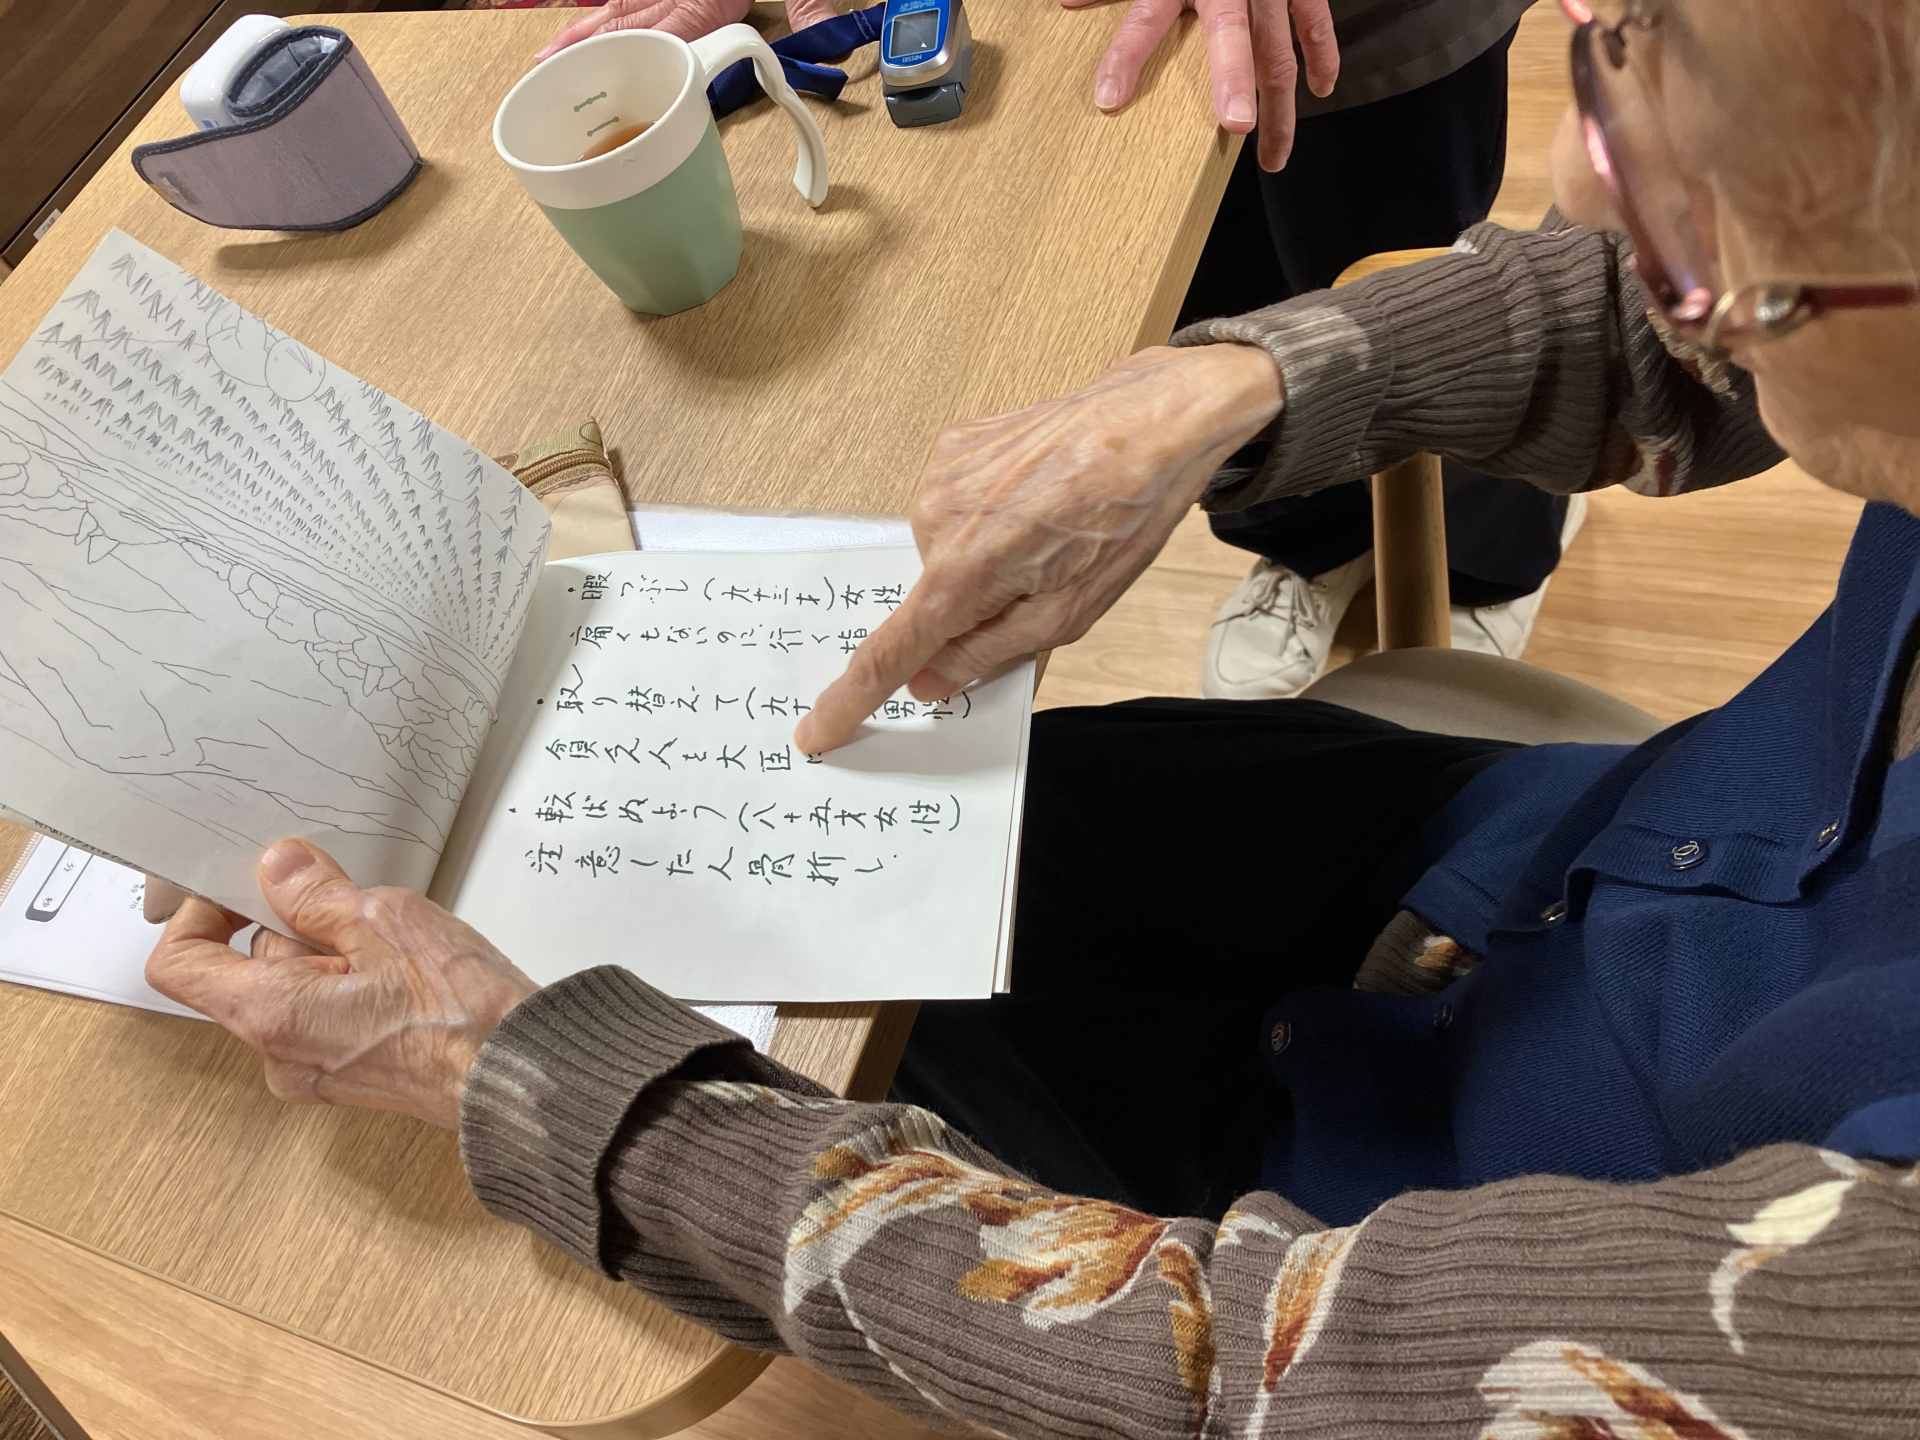 NISSEI
・暇つぶし(九十三才)女性
痛くもないのに行く
・取り替えて(九十 男性)
人を大臣に
・転ばぬよう(八十五才女性)
注意した人骨折し